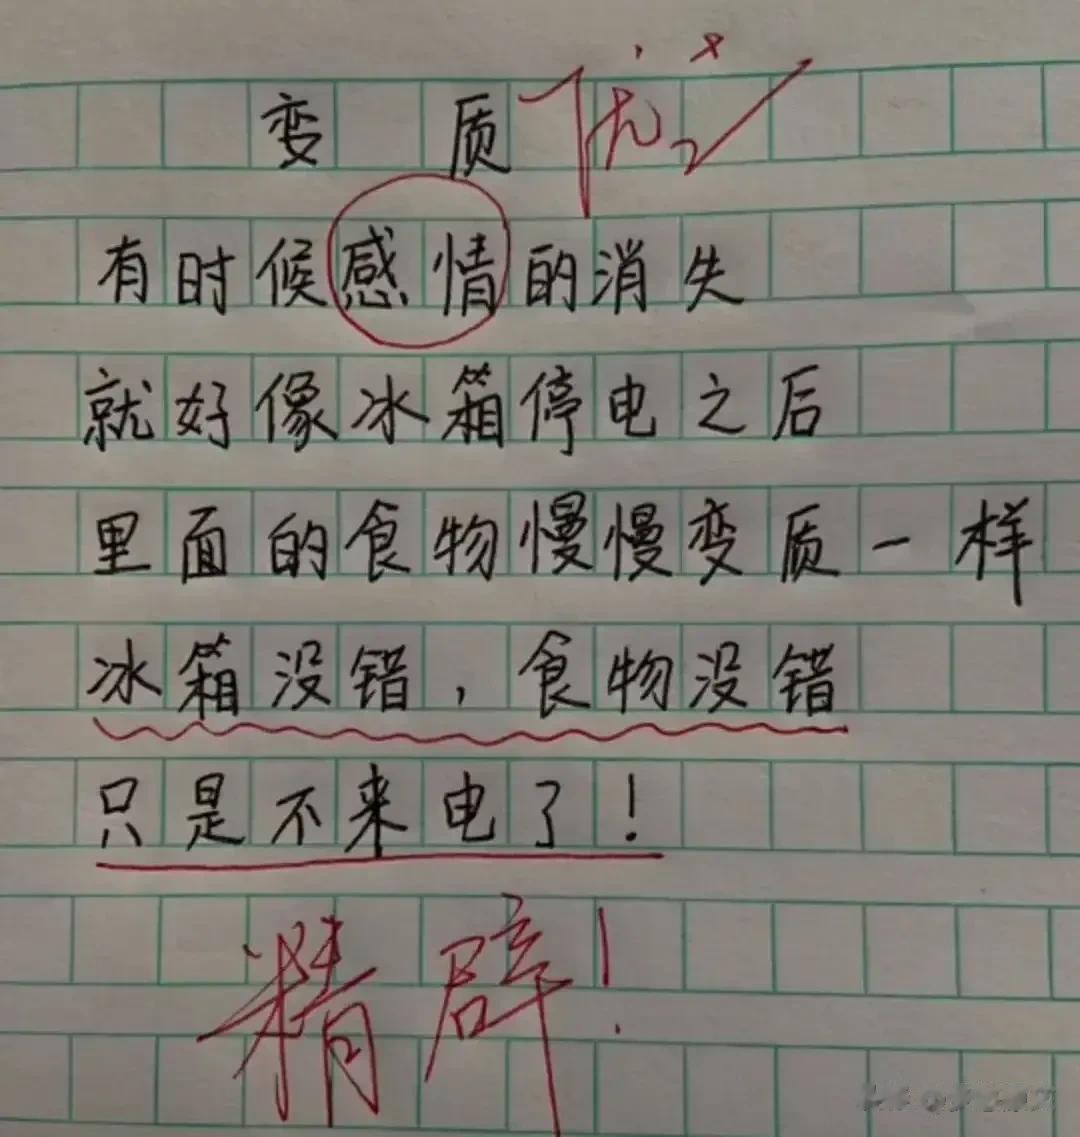 变质 优
有时候感情的消失
就好像冰箱停电之后
里面的食物慢慢变质一样
冰箱没错，食物没错
只是不来电了！
精辟！